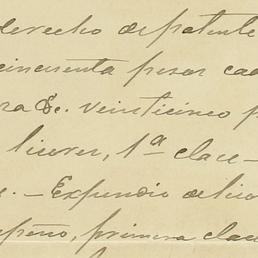 derecho de patente
cincuenta pesos cad
ra &c. veinticinco p
licores, 1ª clase —
e. — Expendio de lico
epeño, primera clase